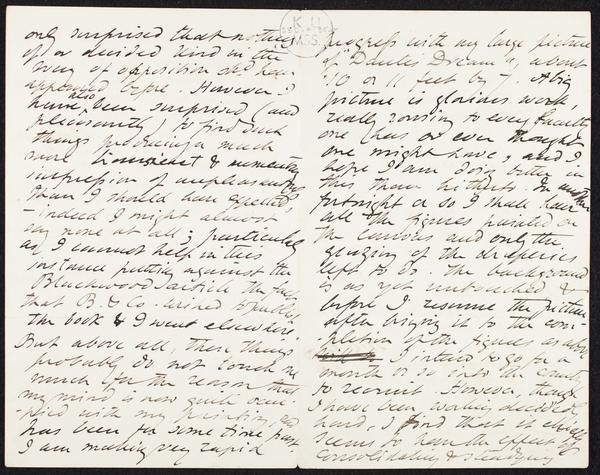 only surprised that nothing
of a decided kind in the
way of opposition sh'd have
appeared before. However I
have also been surprised (and
pleasantly) to find such
things producing a much
more transient & momentary
impression of unpleasantness
than I should have expected
– indeed I might almost
say none at all; particularly
as I cannot help in this
instance putting against the
Blackwood article the fact
that B. & Co. wished to publish
the book & I went elsewhere.
But above all, these things
probably do not touch me
much for the reason that
my mind is now quite occu-
-pied with my painting, and
has been for some time past.
I am making very rapid
K. U.
MSS.
progress with my large picture
of "Dante's Dream", about
10 or 11 feet by 7. A big
picture is glorious work,
really rousing to every faculty
one has or ever thought
one might have, and I
hope I am doing better in
this than hitherto. In another
fortnight or so I shall have
all the figures painted on
the canvas and only the
glazing of the draperies
left to do. The background
is as yet untouched &
before I resume the picture
after bringing it to the com-
pletion of the figures as above
I intend to go for a
month or so into the country
to recruit. However, though
I have been working decidedly
hard, I find that it chiefly
seems to have the effect of
consolidating & steadying